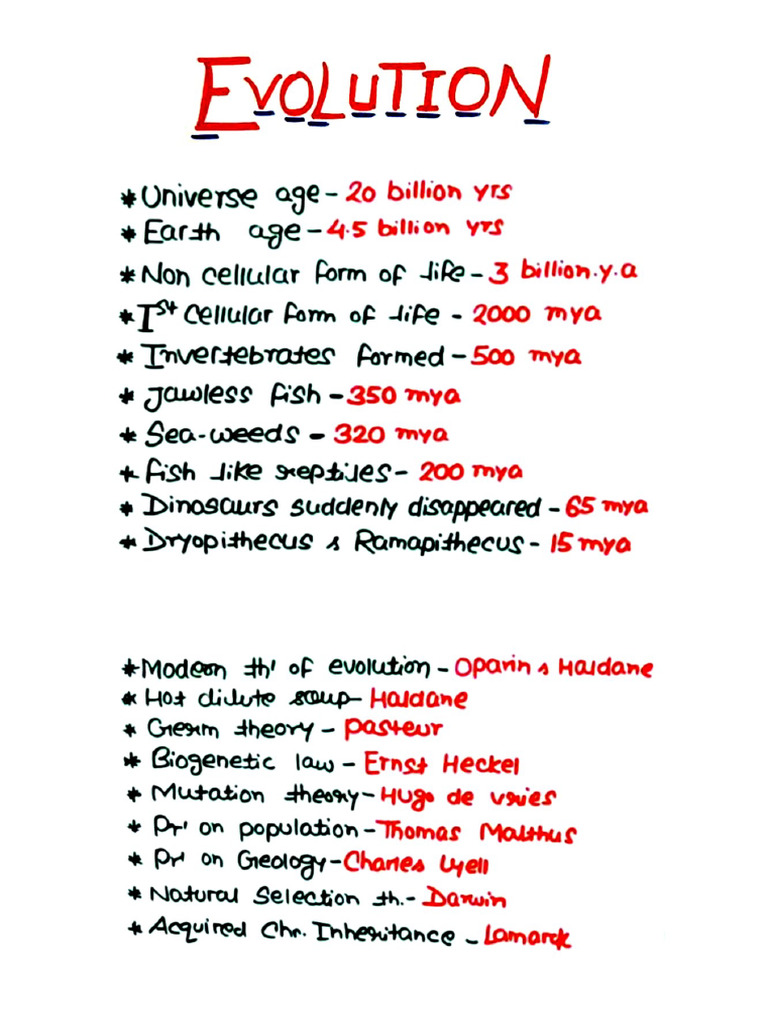 EVOLUTION
* Universe age - 20 billion yrs
* Earth age - 4.5 billion yrs
* Non cellular form of life - 3 billion.y.a
* Ist cellular form of life - 2000 mya
* Invertebrates formed - 500 mya
* Jawless fish - 350 mya
* Sea-weeds - 320 mya
* fish like reptiles - 200 mya
* Dinosaurs suddenly disappeared - 65 mya
* Dryopithecus & Ramapithecus - 15 mya
* Modern th' of evolution - Oparin & Haldane
* Hot dilute soup - Haldane
* Germ theory - Pasteur
* Biogenetic law - Ernst Heckel
* Mutation theory - Hugo de vries
* Pr' on population - Thomas Malthus
* Pr' on Geology - Charles Lyell
* Natural Selection th. - Darwin
* Acquired Chr. Inheritance - Lamarck